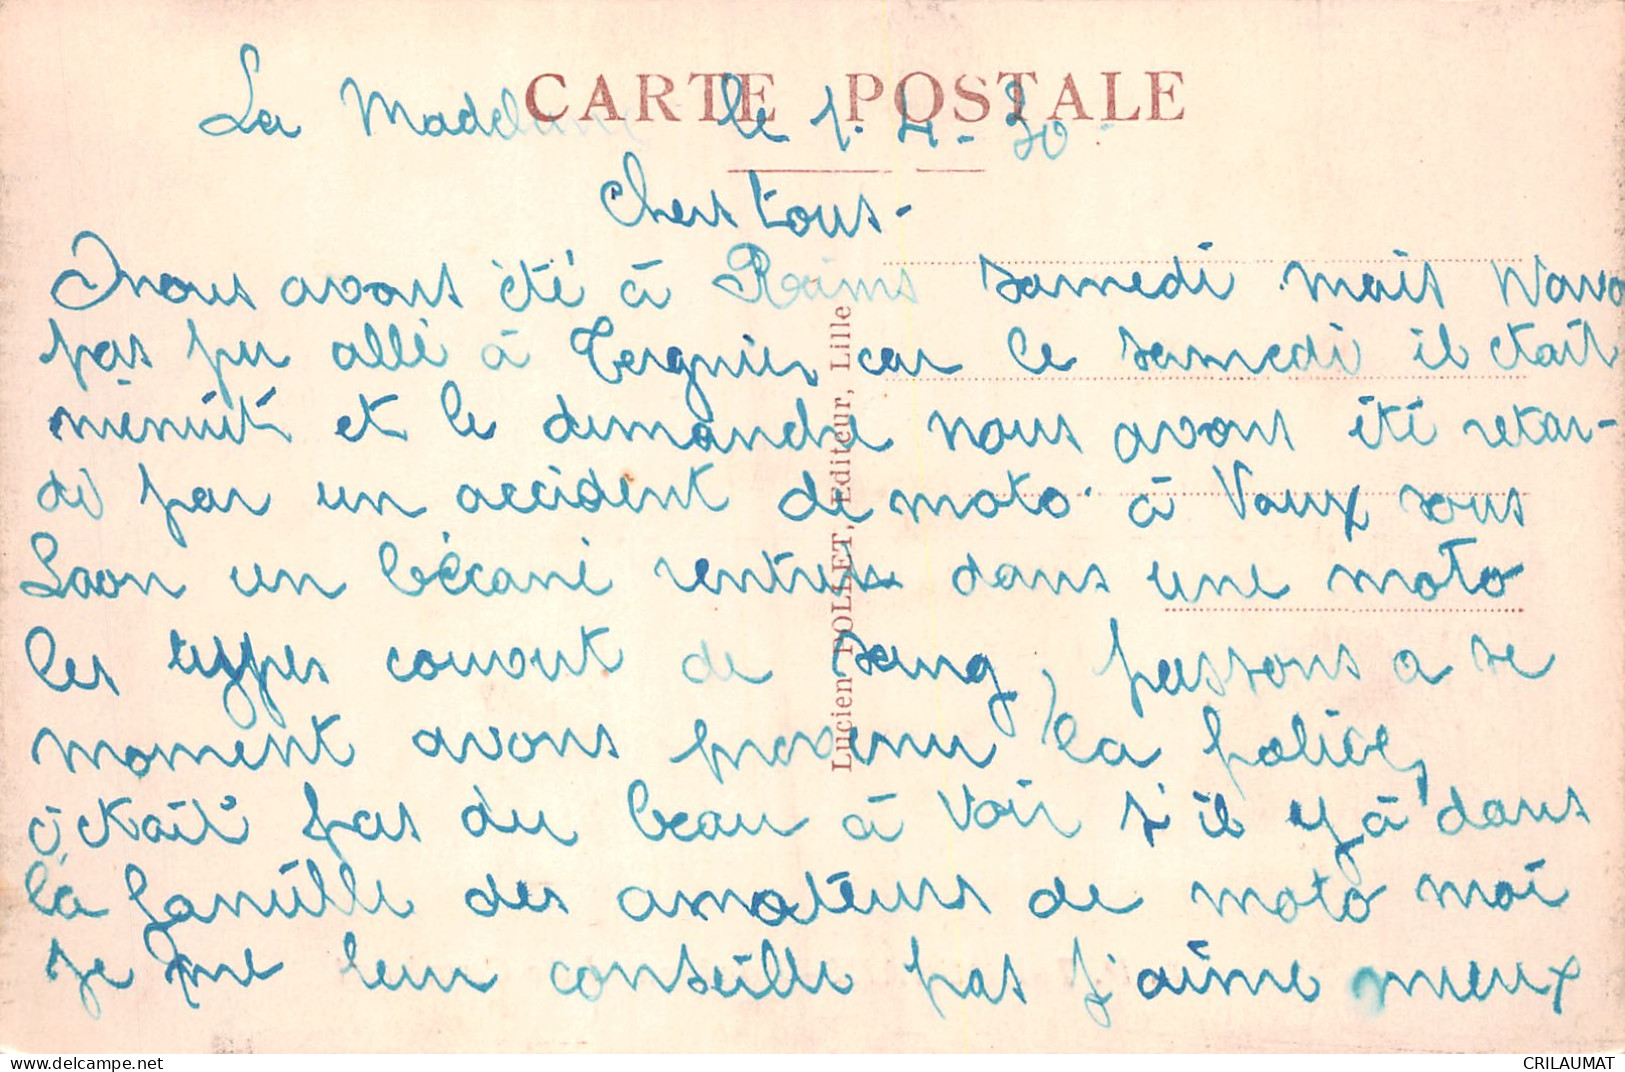 CARTE POSTALE
La Madeleine le 1. 4 - 30 -
Chers tous -
nous avons été à Reims samedi mais n'avo
pas pu allé à Tergnier car le samedi il était
minuit et le dimanche nous avons été retar-
di par un accident de moto à Vaux sous
Laon un bécane rentres dans une moto
les types couvert de sang, passons a se
moment avons prevenu la police,
c'ctait pas du beau à voir s'il y à dans
la famille des amateurs de moto moi
je ne leur conseille pas j'aime mieux
Lucien POLLET, Editeur, Lille
delcampe.net
CRILAUMAT